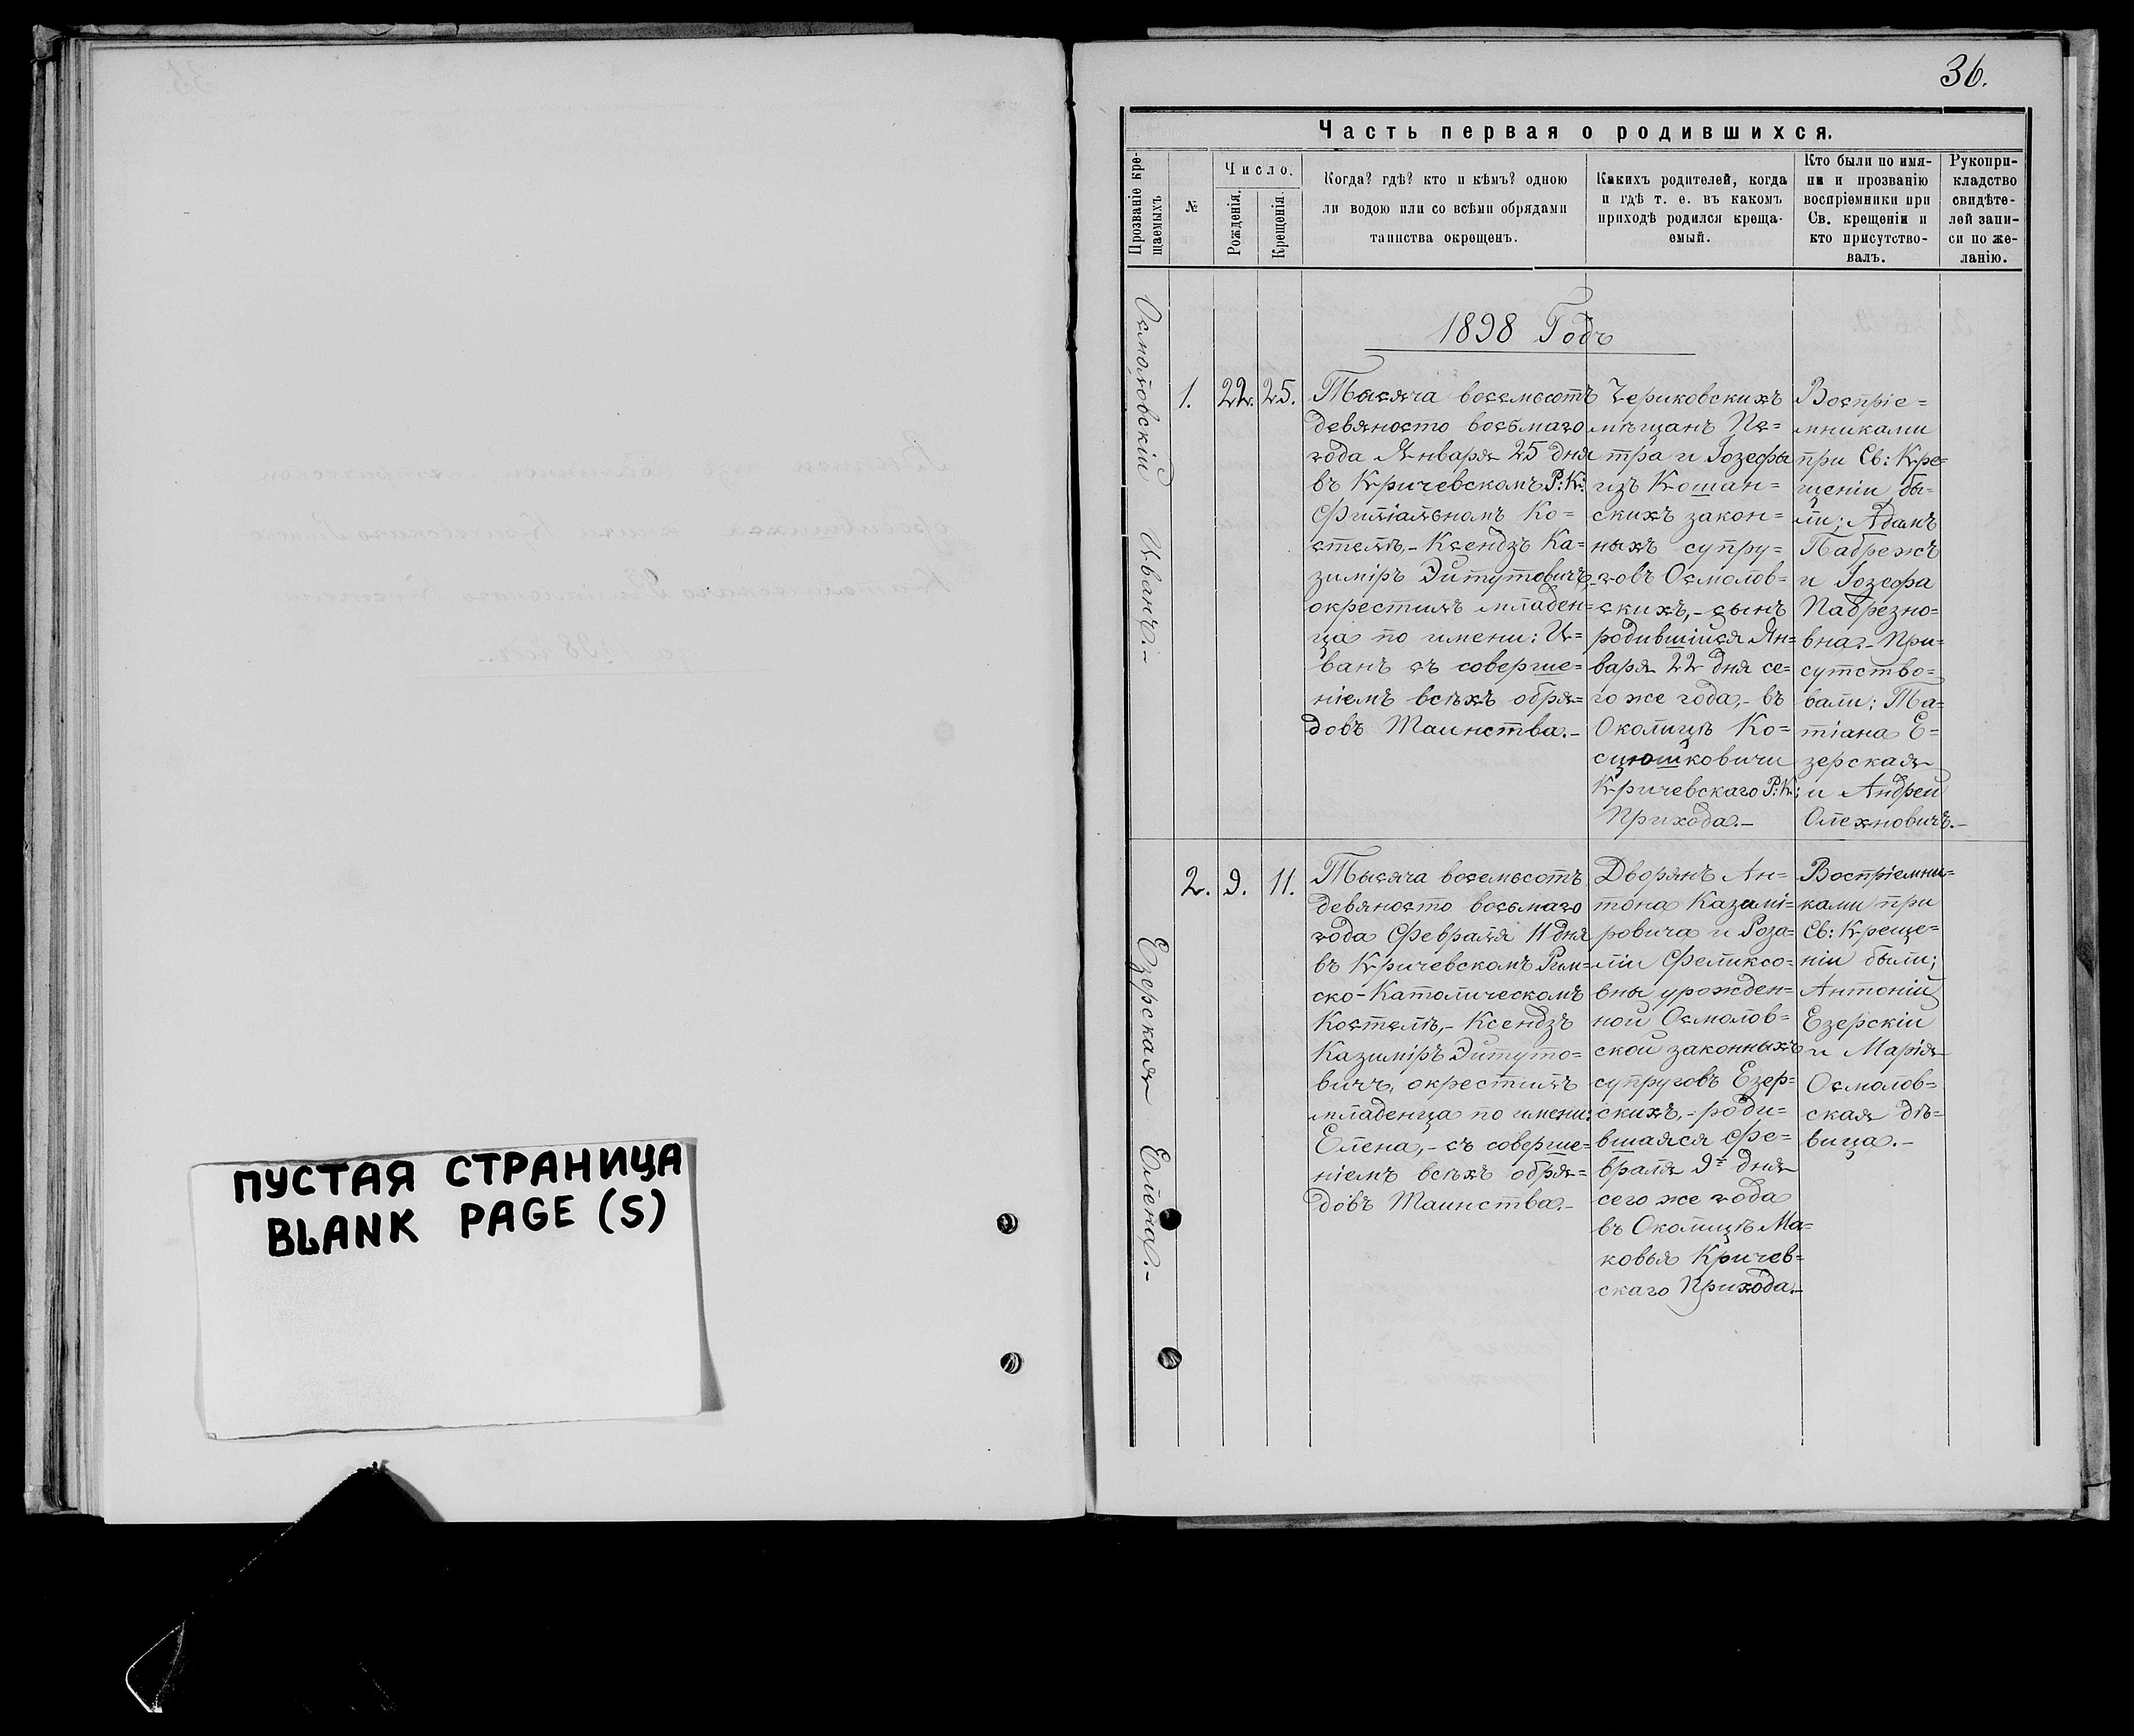 ПУСТАЯ СТРАНИЦА
BLANK PAGE (S)
36.
Часть первая о родившихся.
Прозваніе кре-
щаемыхъ
№
Число.
Рожденія.
Крещенія.
Когда? гдѣ? кто и кѣмъ? одною
ли водою или со всѣми обрядами
таинства окрещенъ.
Какихъ родителей, когда
и гдѣ т. е. въ какомъ
приходѣ родился креща-
емый.
Кто были по имя-
ни и прозванію
воспріемники при
Св. крещеніи и
кто присутство-
валъ.
Рукопри-
кладство
свидѣте-
лей запи-
си по же-
ланію.
1898 Годъ
Осмоловскій Иванъ.-
1.
22.
25.
Тысяча восемьсотъ
девяносто восьмаго
года Января 25 дня
въ Кричевскомъ Р:К:
Филіальномъ Ко=
стелѣ,- Ксендзъ Ка=
зиміръ Эйтутовичъ,
окрестилъ младен=
ца по имени: И=
ванъ съ соверше=
ніемъ всѣхъ обря=
довъ Таинства.-
Чериковскихъ
мѣщанъ Пе=
тра и Іозефы
изъ Кошан=
скихъ закон=
ныхъ супру=
говъ Осмолов=
скихъ,- сынъ
родившійся Ян=
варя 22 дня се=
го же года,- въ
Околицѣ Ко=
сцюшковичи
Кричевскаго Р:К:
Прихода.-
Воспріе=
мниками
при Св: Кре=
щеніи бы=
ли; Адамъ
Пабрежъ
и Іозефа
Пабрезно=
вна.- При=
сутство=
вали; Та=
тіана Е=
зерская
и Андрей
Олехновичъ.-
Езерская Елена.-
2.
9.
11.
Тысяча восемьсотъ
девяносто восьмаго
года Февраля 11 дня
въ Кричевскомъ Рим=
ско-Католическомъ
Костелѣ,- Ксендзъ
Казиміръ Эйтуто=
вичъ, окрестилъ
младенца по имени:
Елена,- съ соверше=
ніемъ всѣхъ обря=
довъ Таинства.-
Дворянъ Ан=
тона Казимі=
ровича и Роза=
ліи Феликсо=
вны урожден=
ной Осмолов=
ской законныхъ
супруговъ Езер=
скихъ,- роди=
вшаяся Фе=
враля 9= дня
сего же года
въ Околицѣ Ма=
ковья Кричев=
скаго Прихода.-
Воспріемни=
ками при
Св: Креще=
ніи были;
Антоній
Езерскій
и Марія
Осмолов=
ская дѣ=
вица.-